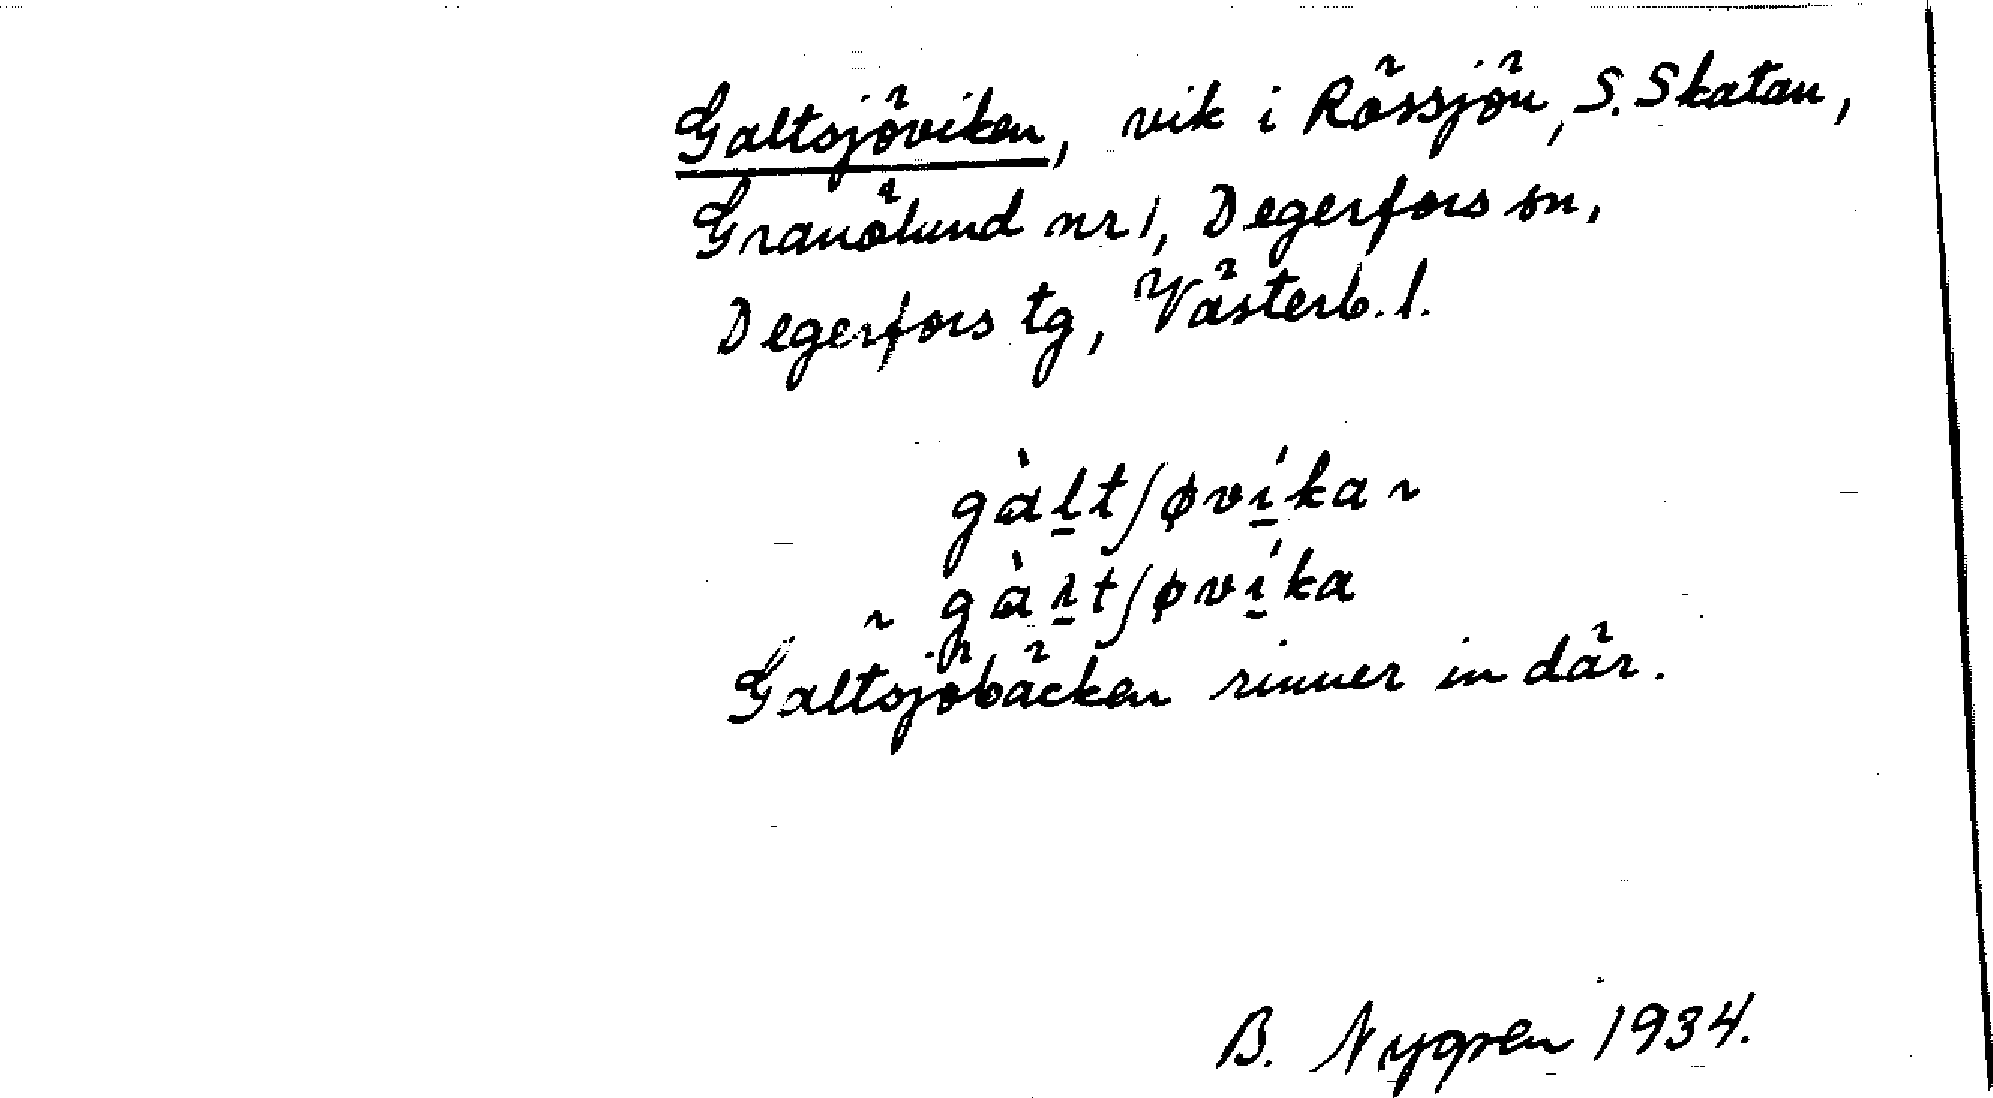 Galtsjöviken, vik i Rössjön, S. Skatan,
Granölund nr 1, Degerfors sn,
Degerfors tg, Västerb. l.
gàl̠tʃøví̠ka ~
~ gàr̠tʃøví̠ka
Galtsjöbäcken rinner in där.
B. Nygren 1934.